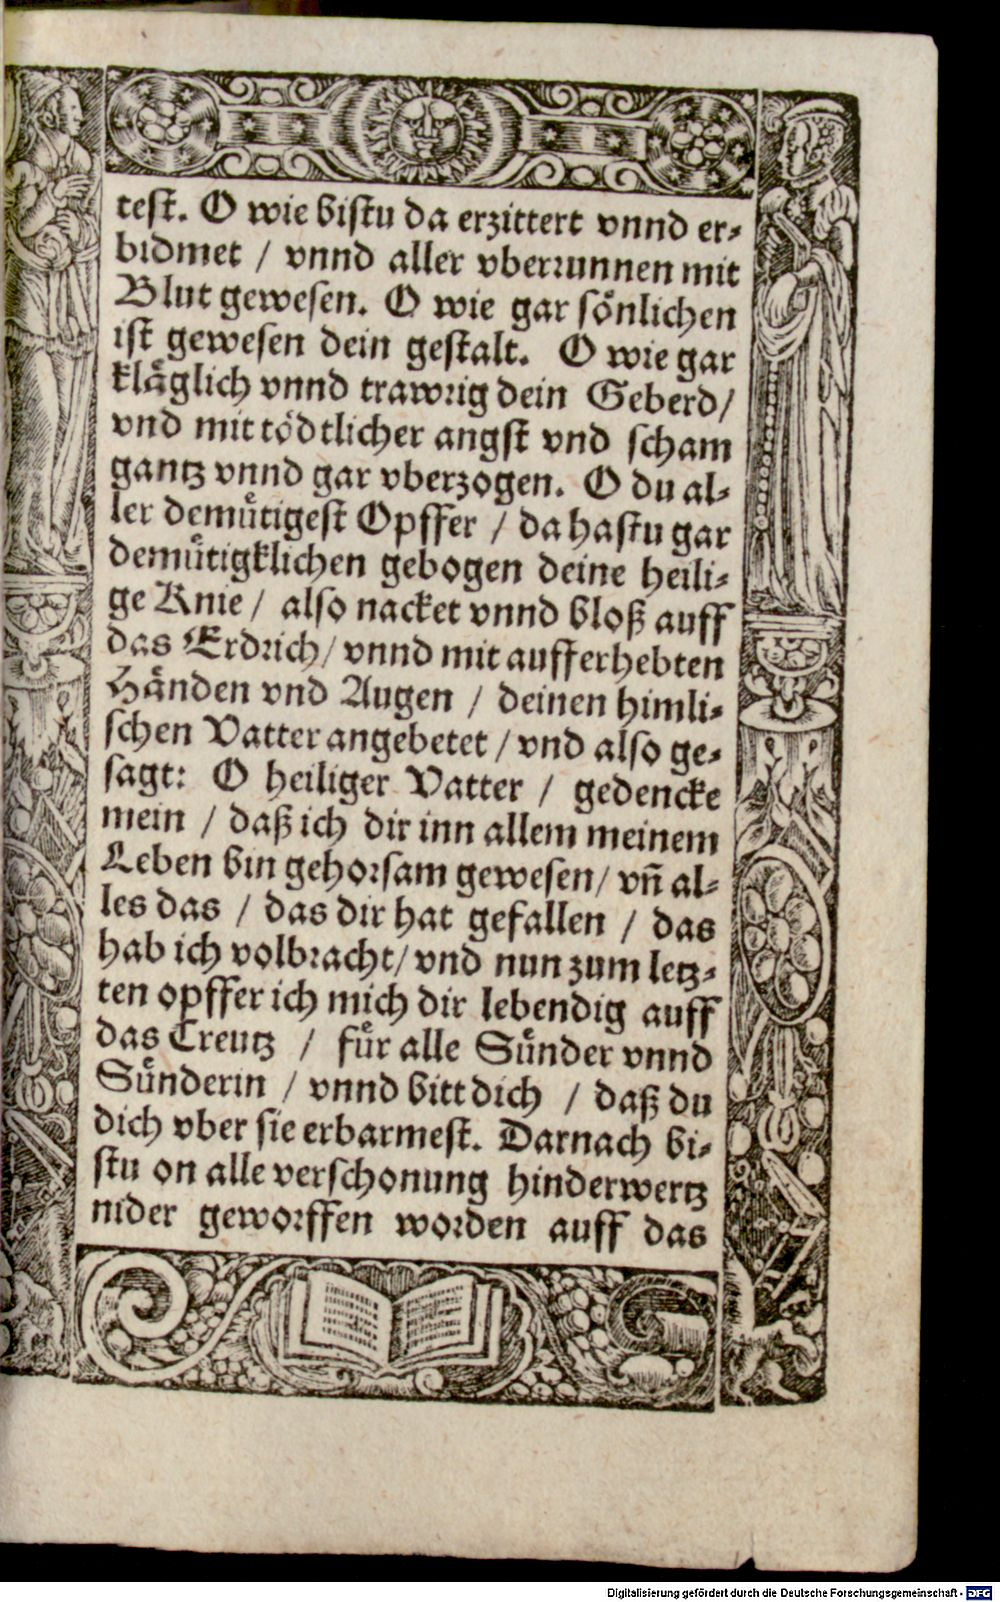 test. O wie bistu da erzittert vnnd er-
bidmet / vnnd aller vberrunnen mit
Blut gewesen. O wie gar sönlichen
ist gewesen dein gestalt. O wie gar
kläglich vnnd trawrig dein Geberd/
vnd mit tödtlicher angst vnd scham
gantz vnnd gar vberzogen. O du al-
ler demütigest Opffer / da hastu gar
demütigklichen gebogen deine heili-
ge Knie / also nacket vnnd bloß auff
das Erdrich/ vnnd mit aufferhebten
Händen vnd Augen / deinen himli-
schen Vatter angebetet / vnd also ge-
sagt: O heiliger Vatter / gedencke
mein / daß ich dir inn allem meinem
Leben bin gehorsam gewesen/ vñ al-
les das / das dir hat gefallen / das
hab ich volbracht/ vnd nun zum letz-
ten opffer ich mich dir lebendig auff
das Creutz / für alle Sünder vnnd
Sünderin / vnnd bitt dich / daß du
dich vber sie erbarmest. Darnach bi-
stu on alle verschonung hinderwertz
nider geworffen worden auff das
Digitalisierung gefördert durch die Deutsche Forschungsgemeinschaft - DFG